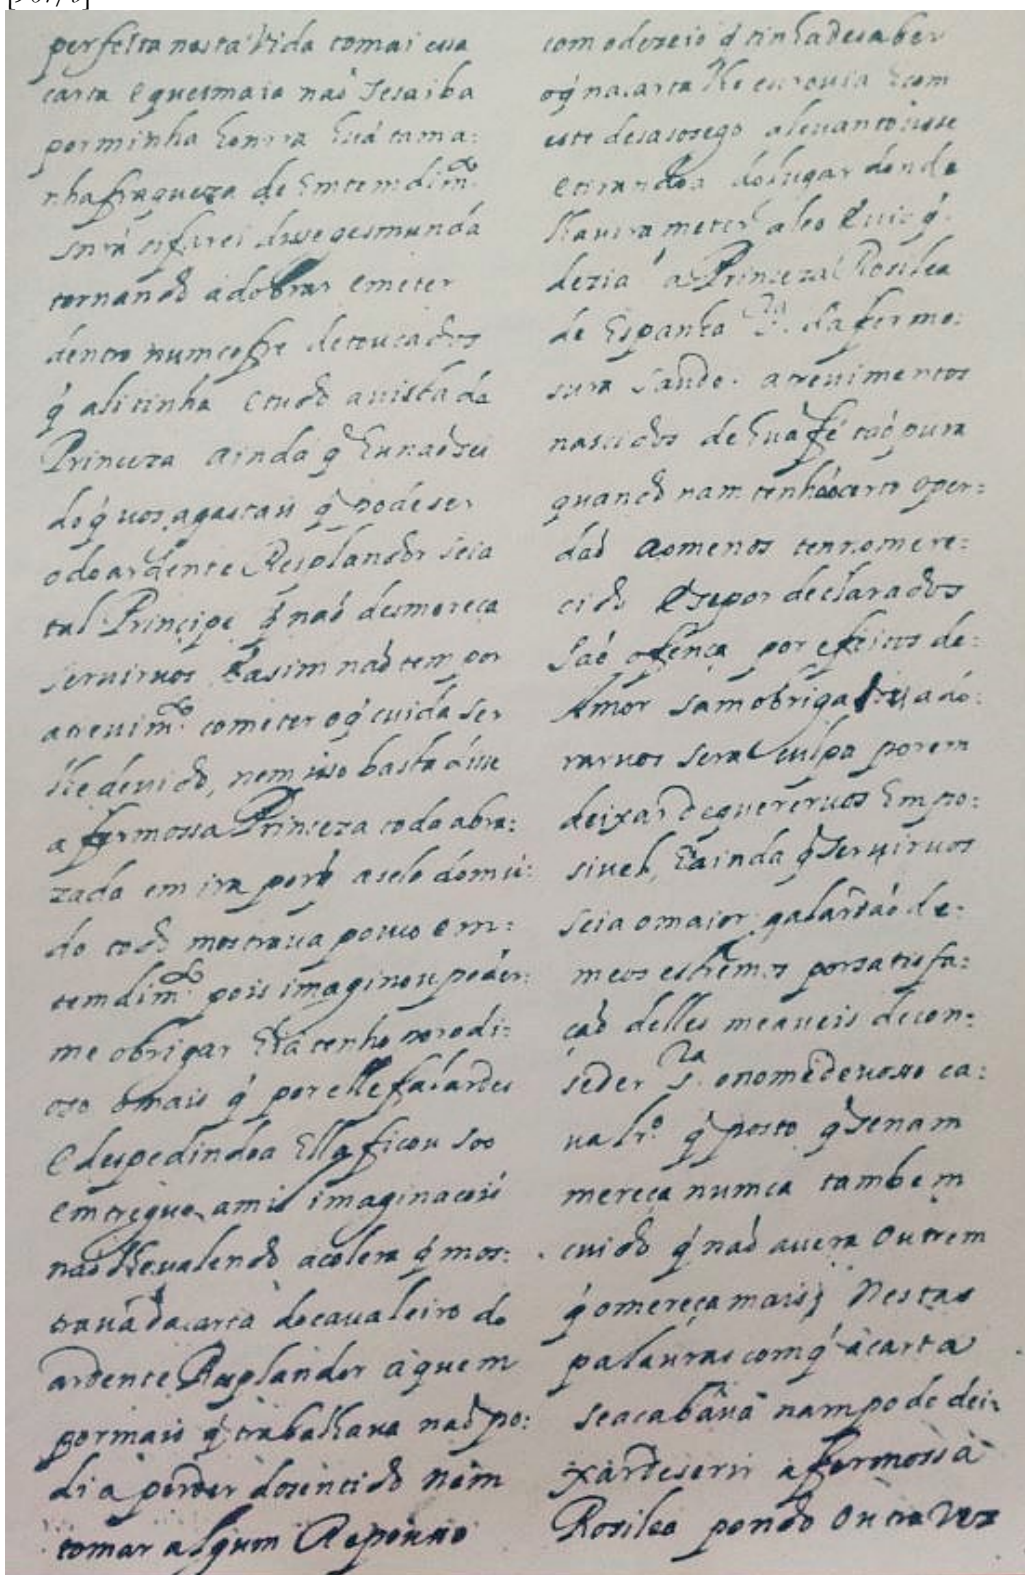 perfeita nesta vida tomai essa
carta e queimaia não se saiba
por minha honrra hũa tama:
nha fraqueza de emtemdim.to
snr̃a si farei disse gesmunda
tornando a dobrar e meter
dentro num cofre de toucados
q̃ ali tinha e tudo a vista da
Princeza ainda q̃ eu não sei
do q̃ vos agastais q̃ pode ser
o do ardente Resplandor seia
tal Principe q̃ não desmereça
servirvos e asim não tem por
atrevim.to cometer o q̃ cuida ser
lhe devido, nem isso basta disse
a fermossa Princeza toda abra:
zada em ira porq̃ a selo do mũ:
do todo mostrava pouco em:
temdim.to pois imaginou poder:
me obrigar eu a tenho por odi:
oso o mais q̃ por elle falardes
e despedindoa ella ficou soo
emtregue a mil imaginacois
não lhe valendo a colera q̃ mos:
trava da carta do cavaleiro do
ardente Resplandor a quem
por mais q̃ trabalhava não po:
dia perder do sentido nem
tomar algum Repouso
com o dezeio q̃ tinha de saber
o q̃ na carta lhe escrevia e com
este desasosego alevantousse
e tirandoa do lugar donde
lha vira meter a leo e vio q̃
dezia a Princeza Rosilea
de Espanha S.ra da fermo:
sura sando. atrevimentos
nascidos de hũa fé tão pura
quando nam tenhão certo o per:
dão ao menos tenno mere:
cido e se por declarados
são ofença por efeitos de:
Amor sam obrigados ado:
rarvos sera culpa porem
deixar de querervos empo:
sivel, e ainda q̃ servirvos
seia o maior galardão de:
meos estremos por satisfa:
ção delles me aveis de con:
seder S.ra o nome de vosso ca:
valr.o q̃ posto q̃ se nam
mereça numca tambem
cuido q̃ não avera outrem
q̃ o mereça mais; Nestas
palavras com q̃ a carta
se acabava nam pode dei:
xar de se rir a fermossa
Rosilea pondo outra vez